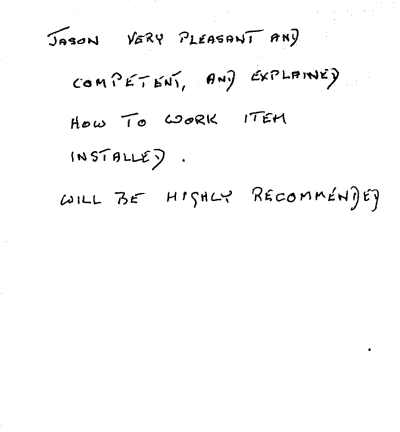 JASON VERY PLEASANT AND
COMPETENT, AND EXPLAINED
HOW TO WORK ITEM
INSTALLED.
WILL BE HIGHLY RECOMMENDED